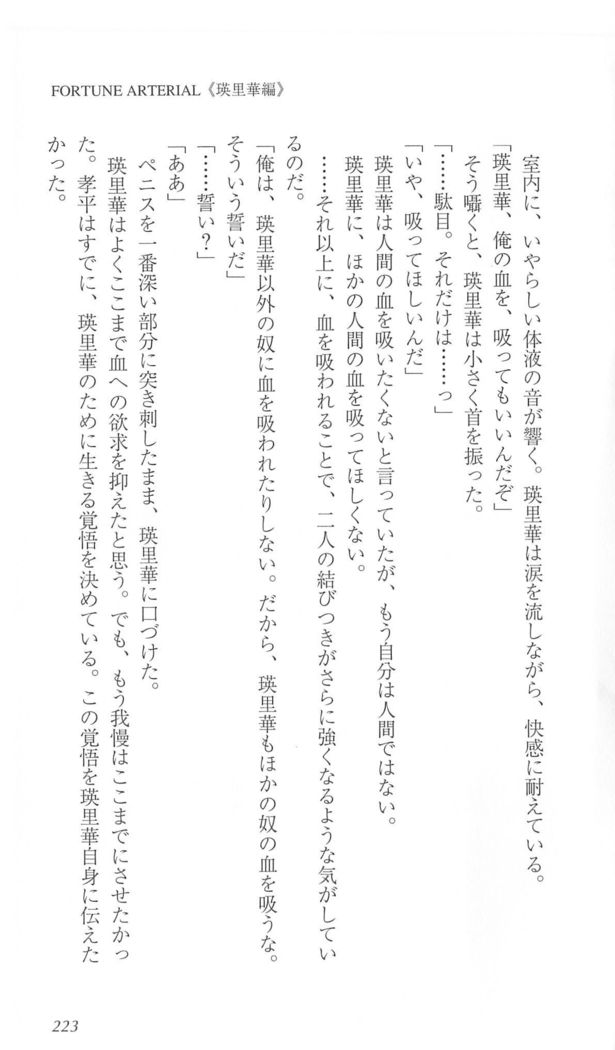 FORTUNE ARTERIAL《瑛里華編》
室内に、いやらしい体液の音が響く。瑛里華は涙を流しながら、快感に耐えている。
「瑛里華、俺の血を、吸ってもいいんだぞ」
そう囁くと、瑛里華は小さく首を振った。
「……駄目。それだけは……っ」
「いや、吸ってほしいんだ」
瑛里華は人間の血を吸いたくないと言っていたが、もう自分は人間ではない。
瑛里華に、ほかの人間の血を吸ってほしくない。
……それ以上に、血を吸われることで、二人の結びつきがさらに強くなるような気がしてい
るのだ。
「俺は、瑛里華以外の奴に血を吸われたりしない。だから、瑛里華もほかの奴の血を吸うな。
そういう誓いだ」
「……誓い？」
「ああ」
ペニスを一番深い部分に突き刺したまま、瑛里華に口づけた。
瑛里華はよくここまで血への欲求を抑えたと思う。でも、もう我慢はここまでにさせたかっ
た。孝平はすでに、瑛里華のために生きる覚悟を決めている。この覚悟を瑛里華自身に伝えた
かった。
223